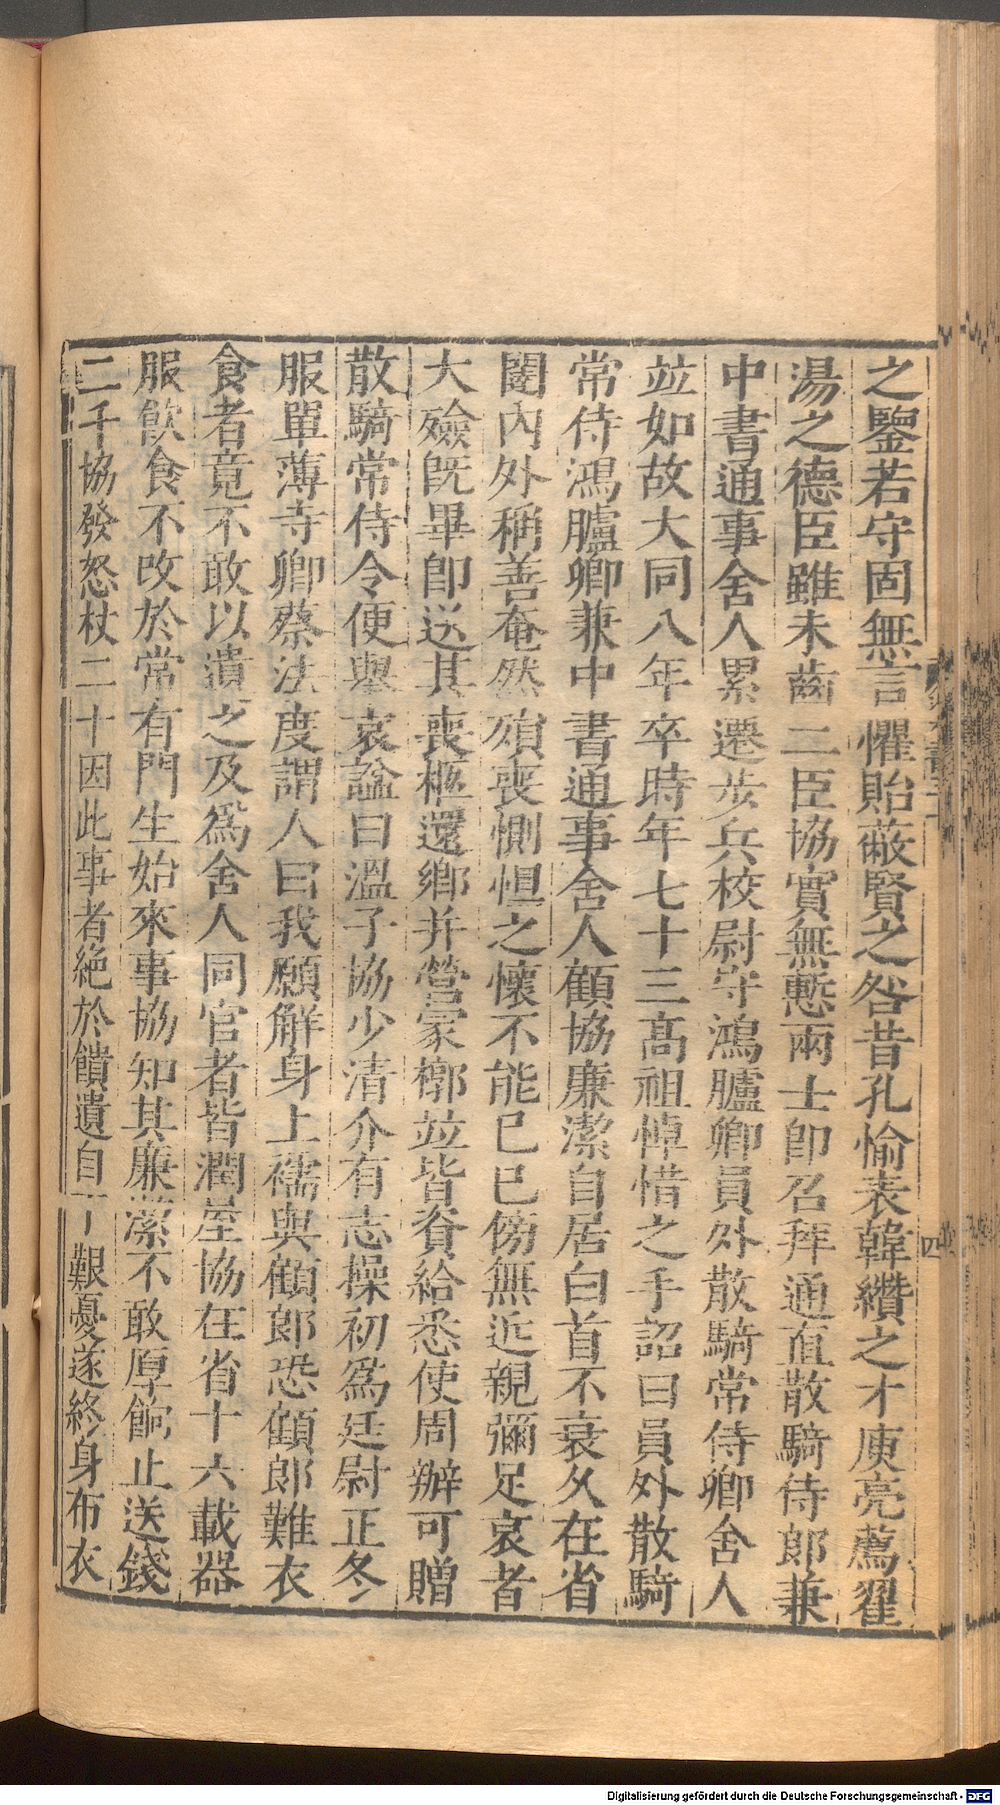 之鑒若守固無言懼貽蔽賢之咎昔孔愉表韓纘之才庾亮薦翟
湯之德臣雖未齒二臣協實無慙兩士即召拜通直散騎侍郎兼
中書通事舍人累遷步兵校尉守鴻臚卿員外散騎常侍卿舍人
竝如故大同八年卒時年七十三高祖悼惜之手詔曰員外散騎
常侍鴻臚卿兼中書通事舍人顧協廉潔自居白首不衰久在省
闥內外稱善奄然殞喪惻怛之懷不能已已傍無近親彌足哀者
大殮既畢即送其喪柩還鄉并營冢槨竝皆資給悉使周辦可贈
散騎常侍令便舉哀諡曰溫子協少清介有志操初爲廷尉正冬
服單薄寺卿蔡法度謂人曰我願解身上襦與顧郎恐顧郎難衣
食者竟不敢以遺之及爲舍人同官者皆潤屋協在省十六載器
服飲食不改於常有門生始來事協知其廉潔不敢厚餉止送錢
二千協發怒杖二十因此事者絶於饋遺自丁艱憂遂終身布衣
四
Digitalisierung gefördert durch die Deutsche Forschungsgemeinschaft - DFG